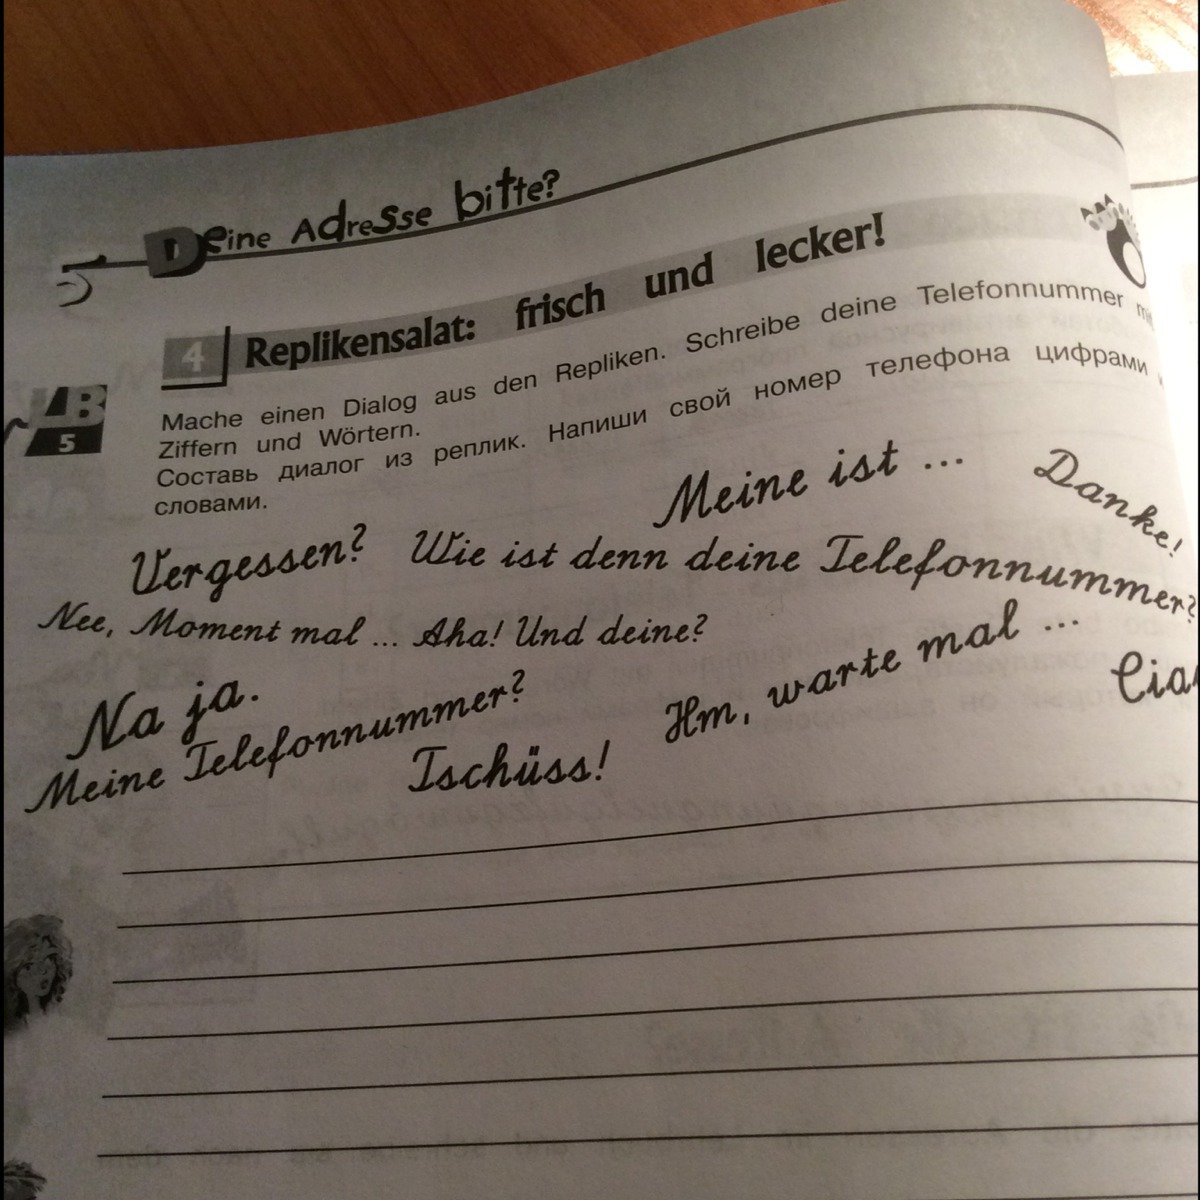 Deine Adresse bitte?
5
4 Replikensalat: frisch und lecker!
LB
5
Mache einen Dialog aus den Repliken. Schreibe deine Telefonnummer
Ziffern und Wörtern.
Составь диалог из реплик. Напиши свой номер телефона цифрами
словами.
Meine ist ...
Danke!
Vergessen?
Wie ist denn deine Telefonnummer?
Nee, Moment mal ... Aha! Und deine?
Na ja.
Hm, warte mal ...
Meine Telefonnummer?
Tschüss!